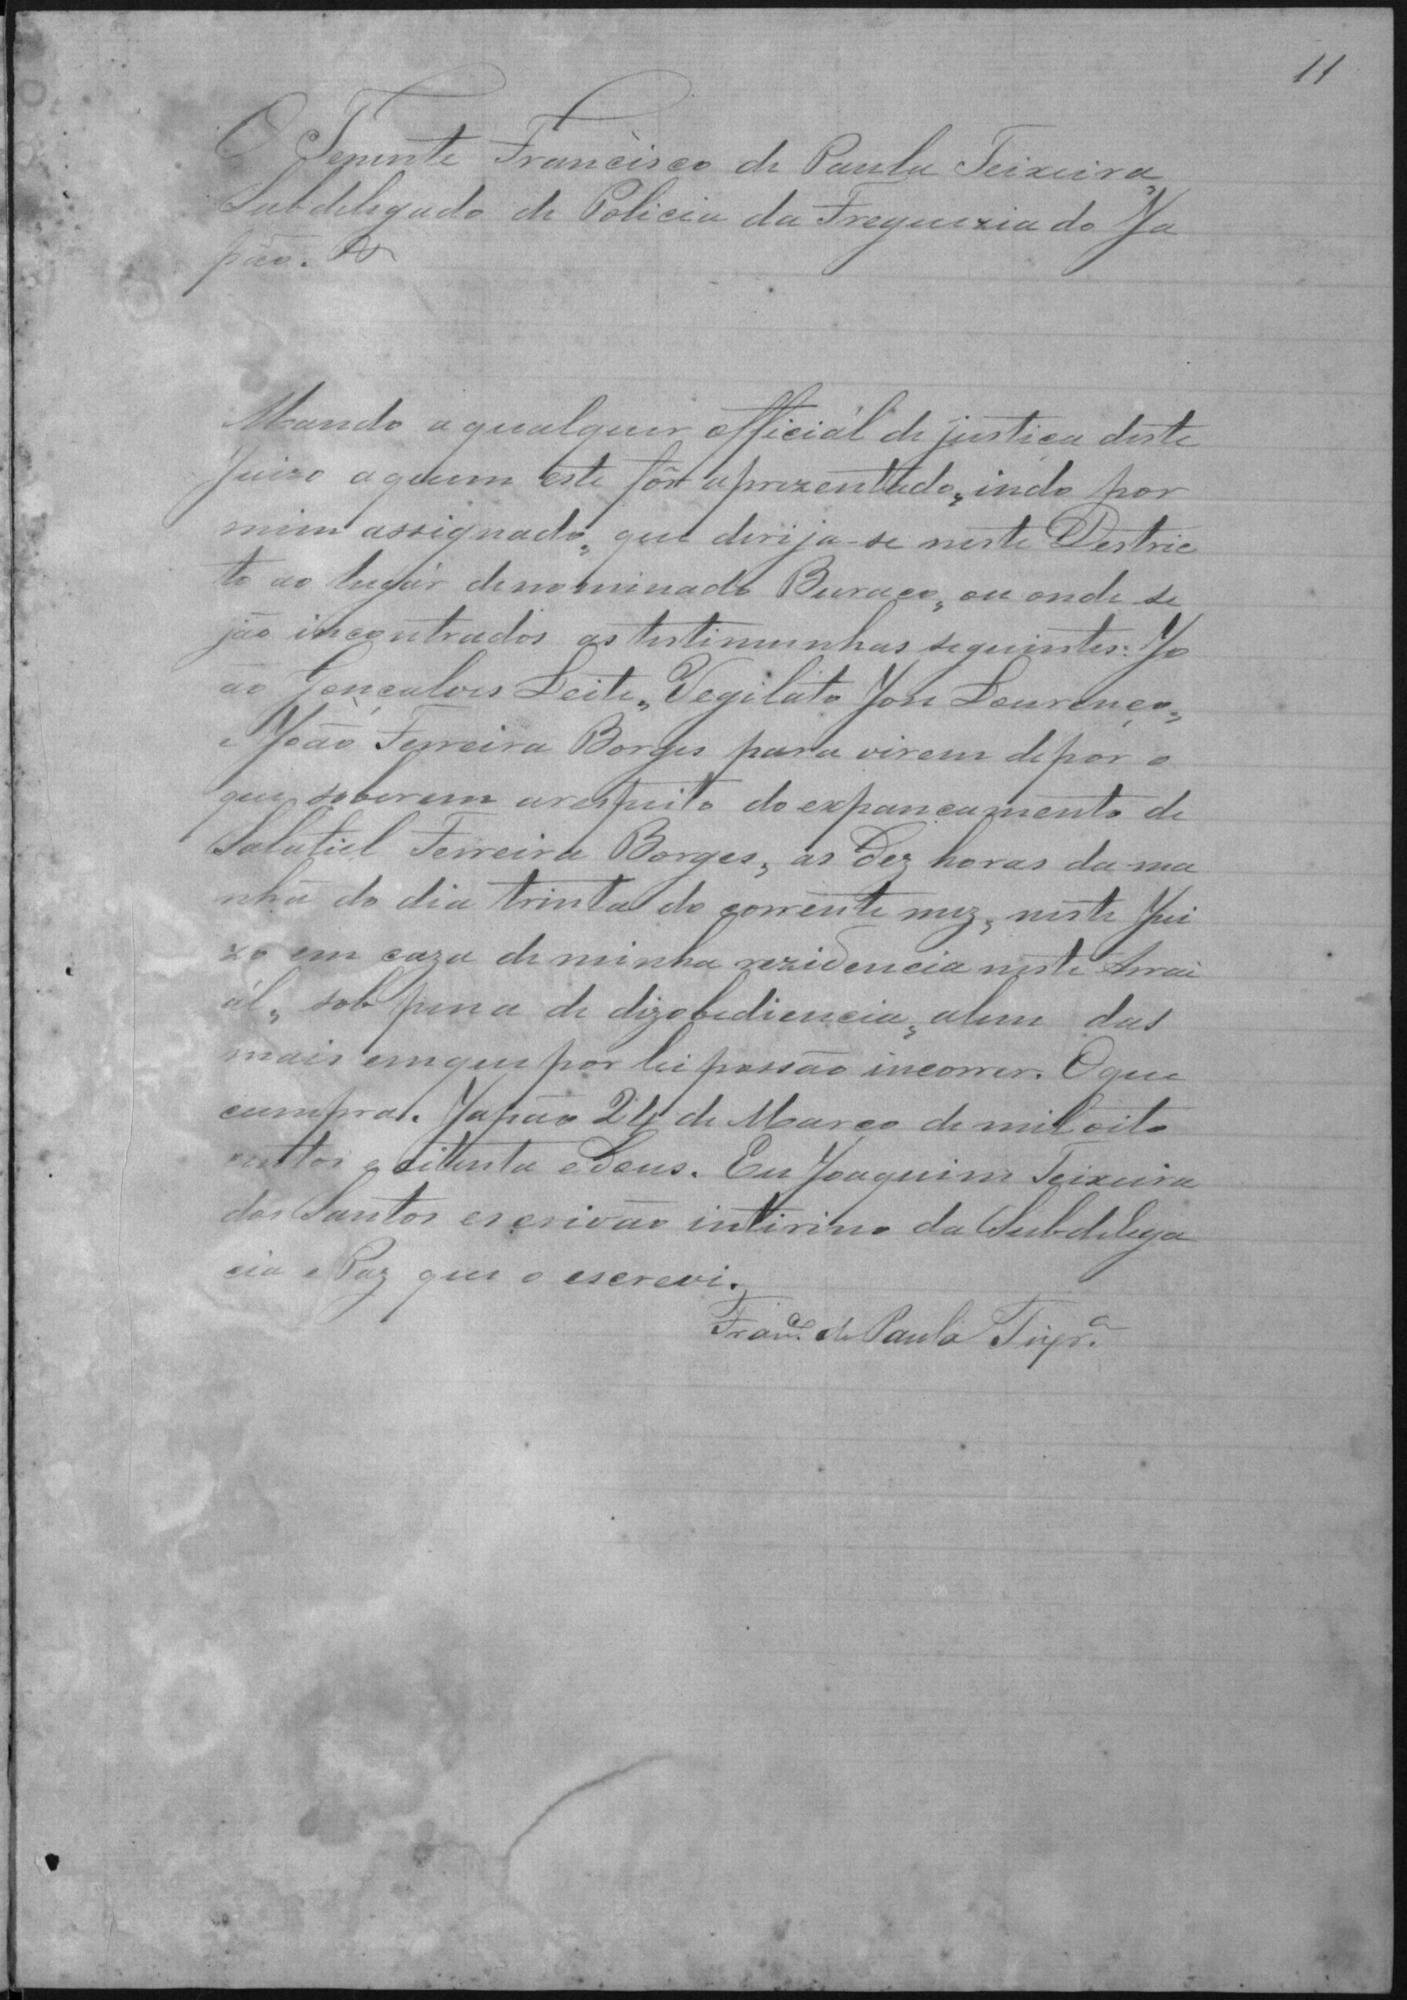 11
O Tenente Francisco de Paula Teixeira,
Subdelegado de Policia da Freguezia do Ja
pão. &
Mando a qualquer officiál de justiça deste
Juizo a quem este fôr aprezentado, indo por
mim assignado, que dirija-se neste Destric
to ao lugár denominado Buraco, ou onde se
jão incontrados as testimunhas seguintes: Jo
ao Gonçalves Leite, Tegilato Jose Lourenço,
e João Ferreira Borges para virem depor o
que soberem arespeito do expancamento de
Salatiel Ferreira Borges, as Dez horas da ma
nhã do dia trinta do corrente mez, neste Jui
zo em caza de minha rezidencia neste Arrai
ál, sob pena de dizobediencia, alem das
mais emque por lei possão incorrer. O que
cumpra. Japão 24 de Março de mil oito
centos e oitenta e Seus. Eu Joaquim Teixeira
dos Santos escrivão intirino da Subdelega
cia e Paz que o escrevi.
Franco. de Paula Teixra.